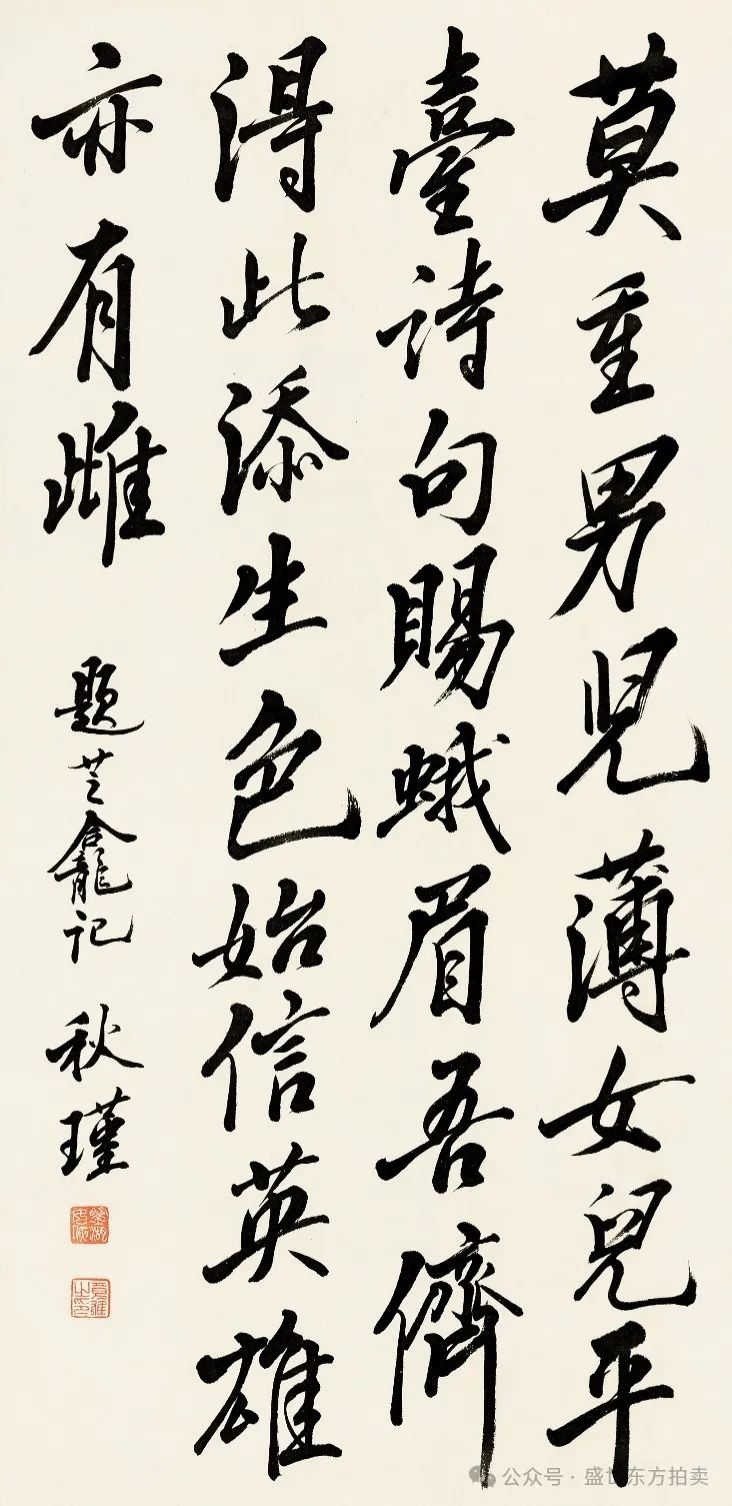 莫重男兒薄女兒平
臺詩句賜蛾眉吾儕
得此添生色始信英雄
亦有雌
題芝龕記 秋瑾
鑒湖女俠
公众号·盛世东方拍卖